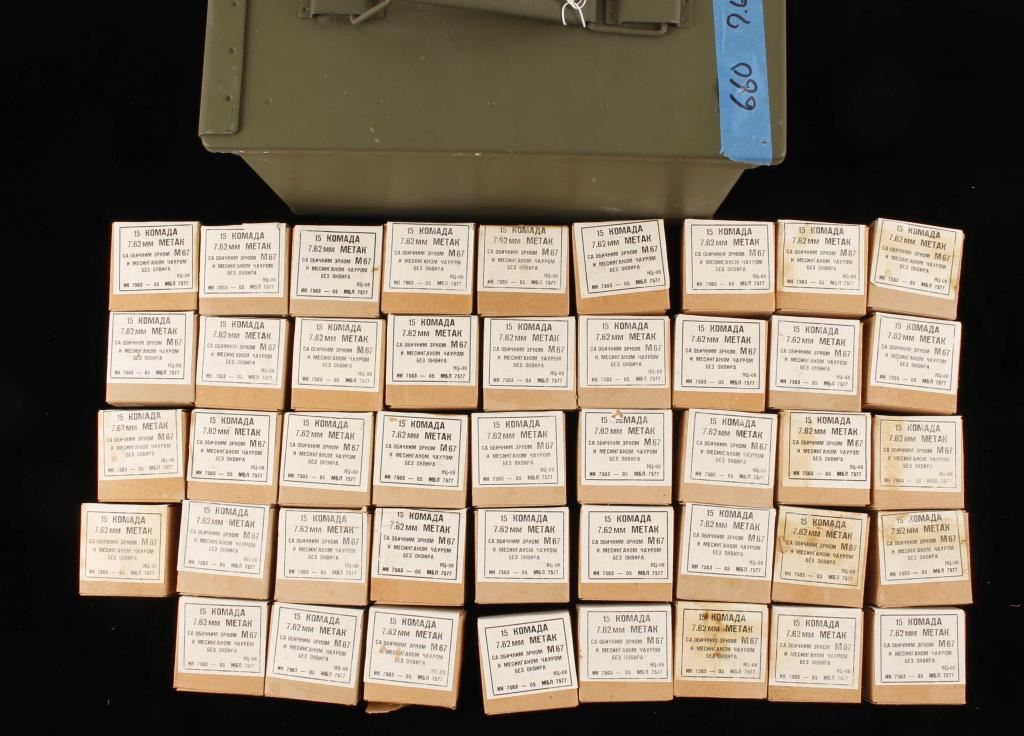 660 7.6
15 КОМАДА
7.62мм МЕТАК
СА ОБИЧНИМ ЗРНОМ М67
И МЕСИНГАНОМ ЧАУРОМ
БЕЗ ОКВИРА
НЦ-08
ИК 7503 — 05 МБЛ 7577